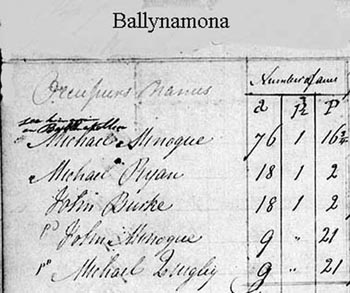 Ballynamona
Occupiers Names
Number of acres
a r p
Michael Minogue 76 1 16¾
Michael Ryan 18 1 2
John Burke 18 1 2
John Minogue 9 " 21
Michael 9 " 21